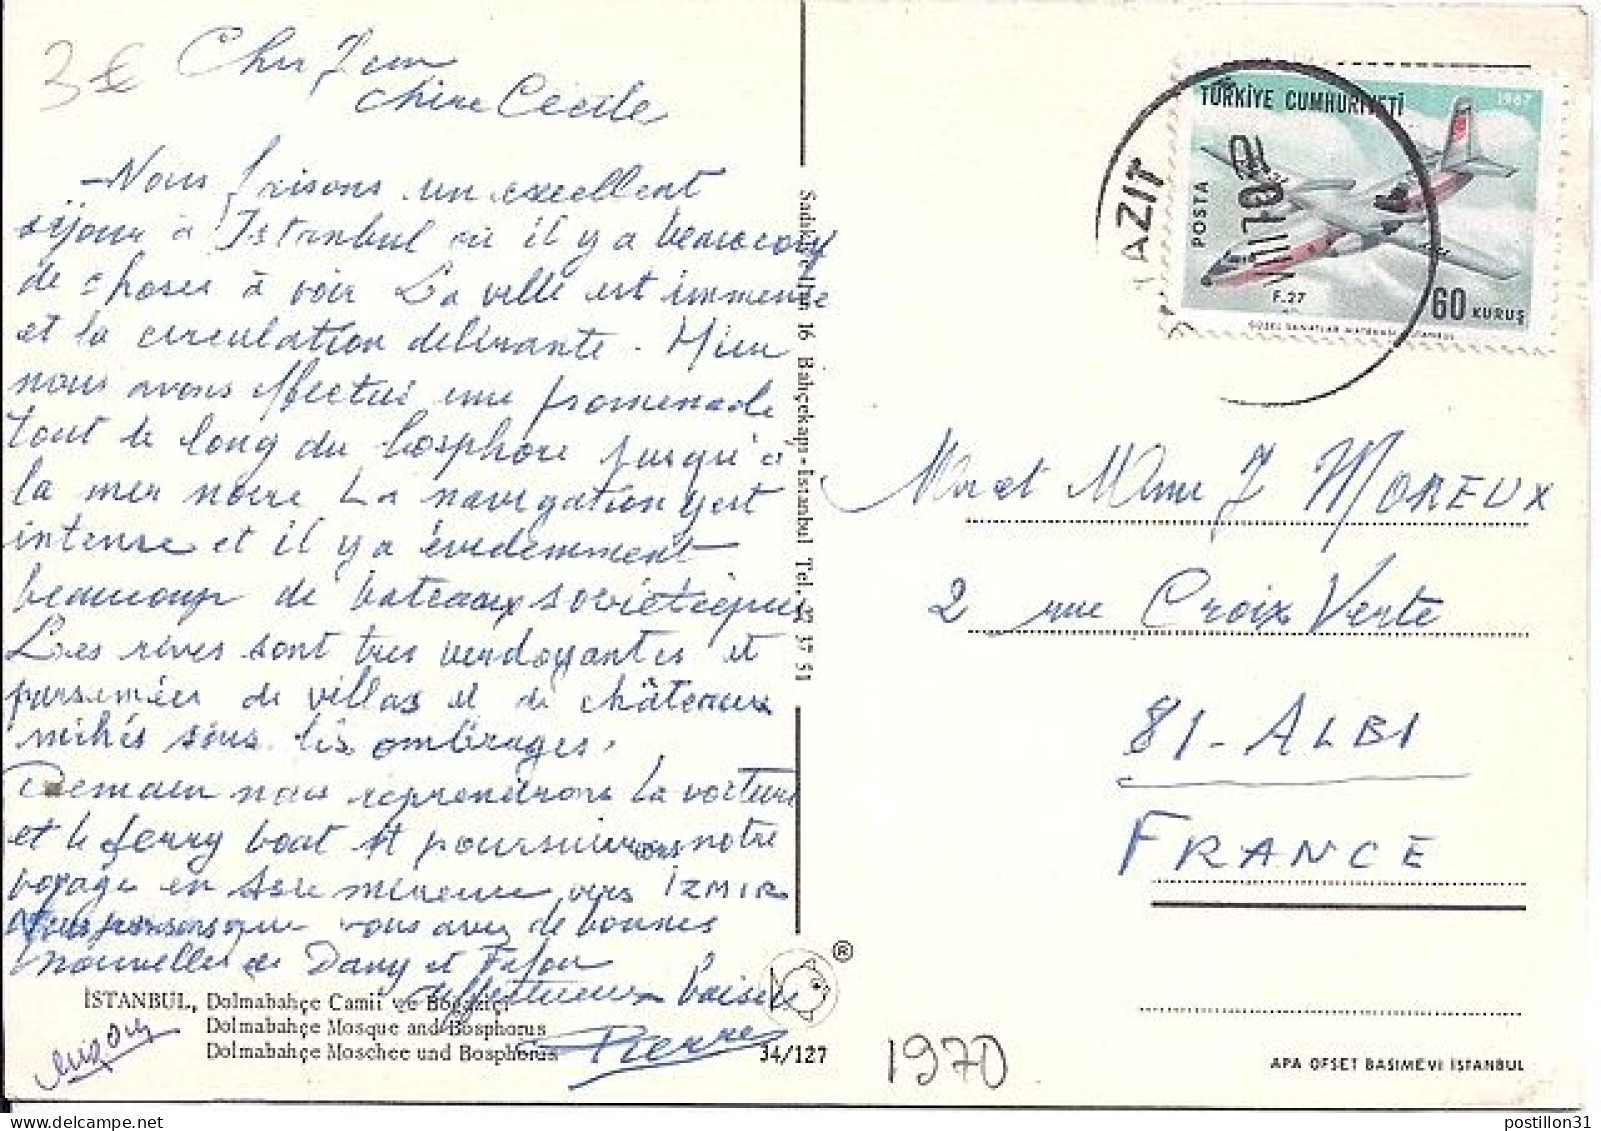 3 €
Cher Jean
chère Cécile
- Nous faisons un excellent
séjour à Istanbul où il y a beaucoup
de choses à voir La ville est immense
et la circulation délirante. Hier
nous avons effectué une promenade
tout le long du bosphore jusqu'à
la mer noire La navigation y est
intense et il y a évidemment
beaucoup de bateaux soviétiques
Les rives sont très verdoyantes et
parsemées de villas et de châteaux
nichés sous les ombrages.
Demain nous reprendrons la voiture
et le ferry boat et poursuivrons notre
voyage en Asie mineure vers IZMIR
Nous pensons que vous avez de bonnes
nouvelles de Dany et
affectueux baisers
Pierre
İSTANBUL, Dolmabahçe Camii ve Boğaziçi
Dolmabahçe Mosque and Bosphorus
Dolmabahçe Moschee und Bosphorus
34/127
®
Sadak 16 Bahçekapı - İstanbul Tel. 37 51
AZIT
TÜRKİYE CUMHURİYETİ
1967
POSTA
F.27
60 KURUŞ
GÜZEL SANATLAR MATBAASI İSTANBUL
Mr et Mme J MOREUX
2 rue Croix Verte
81 - ALBI
FRANCE
1970
APA OFSET BASIMEVİ İSTANBUL
postillon31